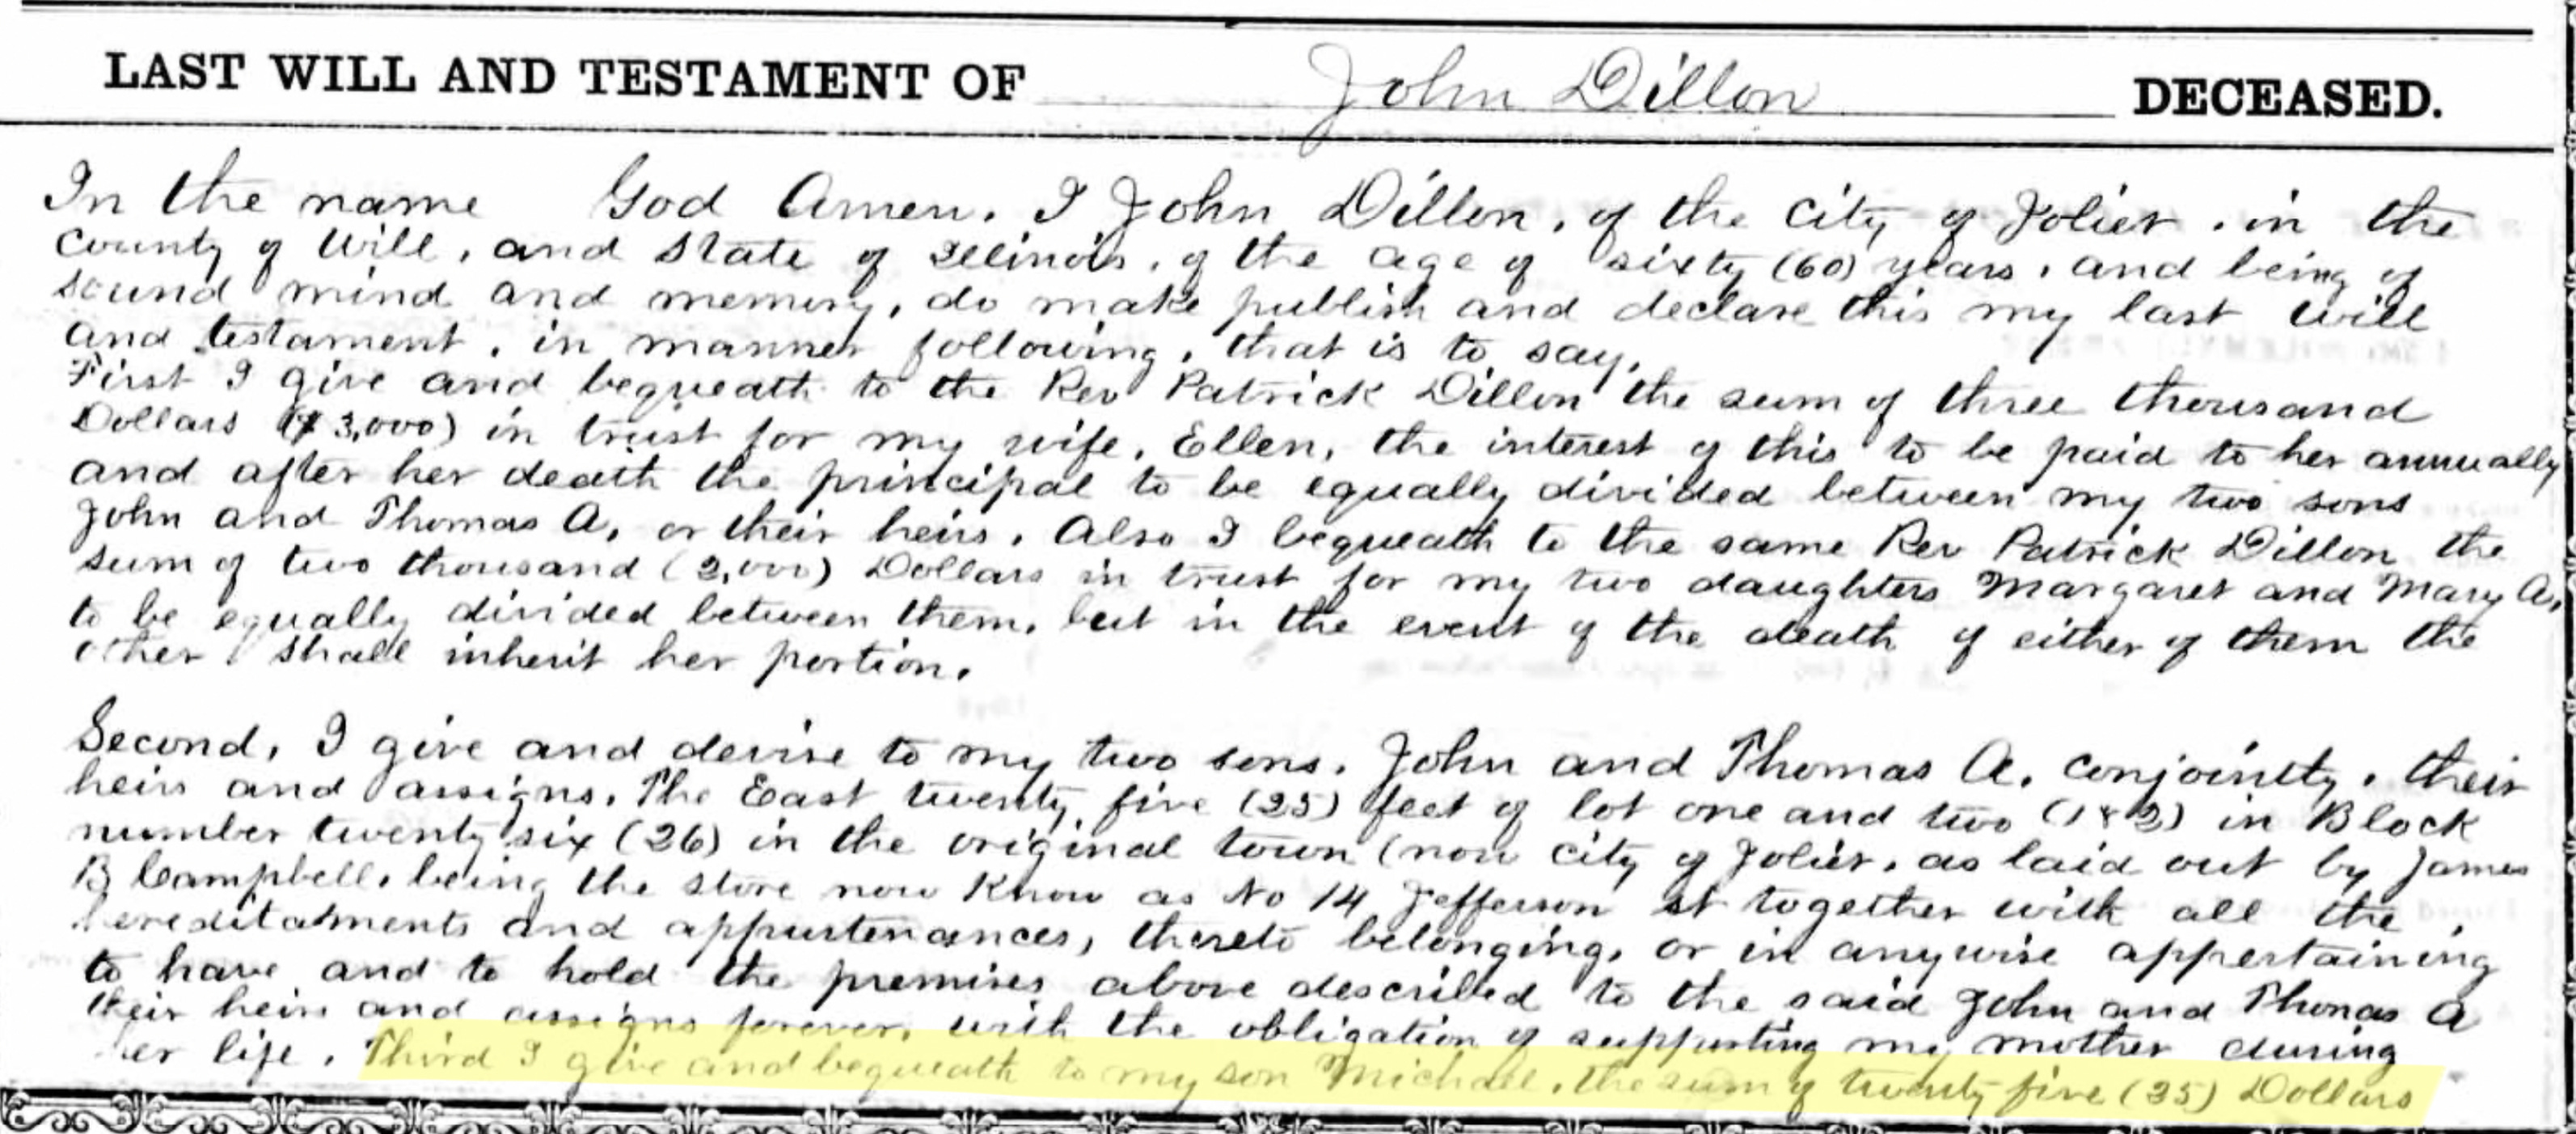 LAST WILL AND TESTAMENT OF John Dillon DECEASED.
In the name God Amen. I John Dillon, of the City of Joliet, in the
County of Will, and State of Illinois, of the age of sixty (60) years, and being of
sound mind and memory, do make publish and declare this my last will
and testament, in manner following, that is to say,
First I give and bequeath to the Rev Patrick Dillon the sum of three thousand
Dollars ($3,000) in trust for my wife, Ellen, the interest of this to be paid to her annually
and after her death the principal to be equally divided between my two sons
John and Thomas A, or their heirs. Also I bequeath to the same Rev Patrick Dillon the
sum of two thousand (2,000) Dollars in trust for my two daughters Margaret and Mary A,
to be equally divided between them, but in the event of the death of either of them the
other shall inherit her portion.
Second, I give and devise to my two sons, John and Thomas A. conjointly, their
heirs and assigns, The East twenty five (25) feet of lot one and two (1 & 2) in Block
number twenty six (26) in the original town (now city of Joliet, as laid out by James
B Campbell, being the store now know as No 14 Jefferson st together with all the
hereditatments and appurtenances, thereto belonging, or in anywise appertaining
to have and to hold the premises above described to the said John and Thomas A
their heirs and assigns forever, with the obligation of supporting my mother during
her life. Third I give and bequeath to my son Michael, the sum of twenty five (25) Dollars